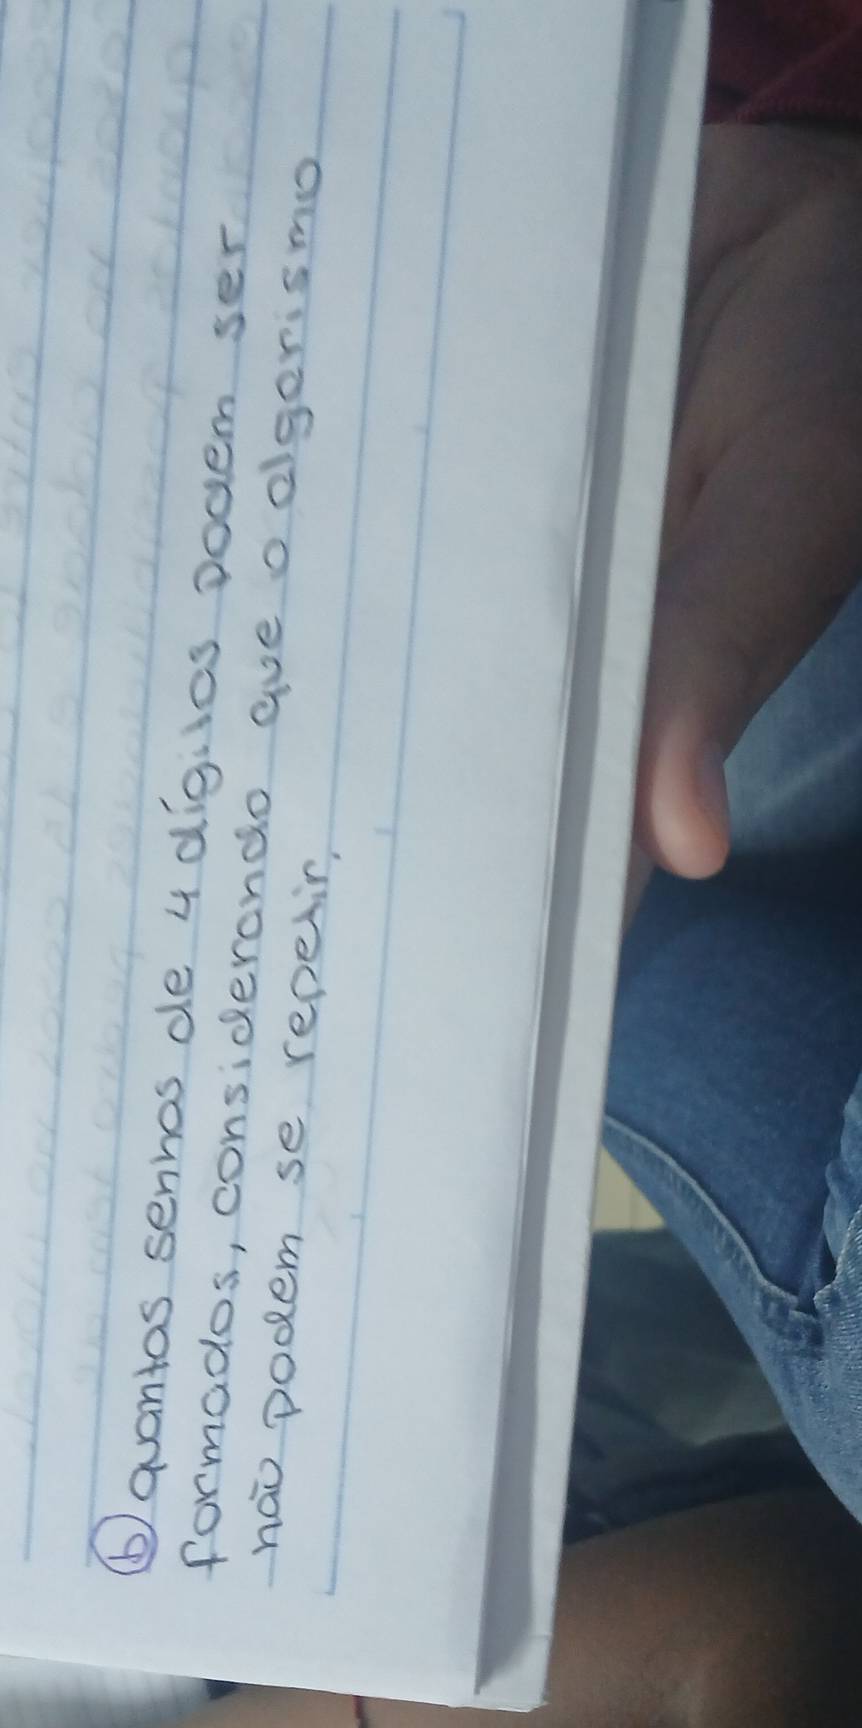 b) quantas senhas de 4 dígitos podem ser
formados, considerando que o algarismo
não podem se repetir.